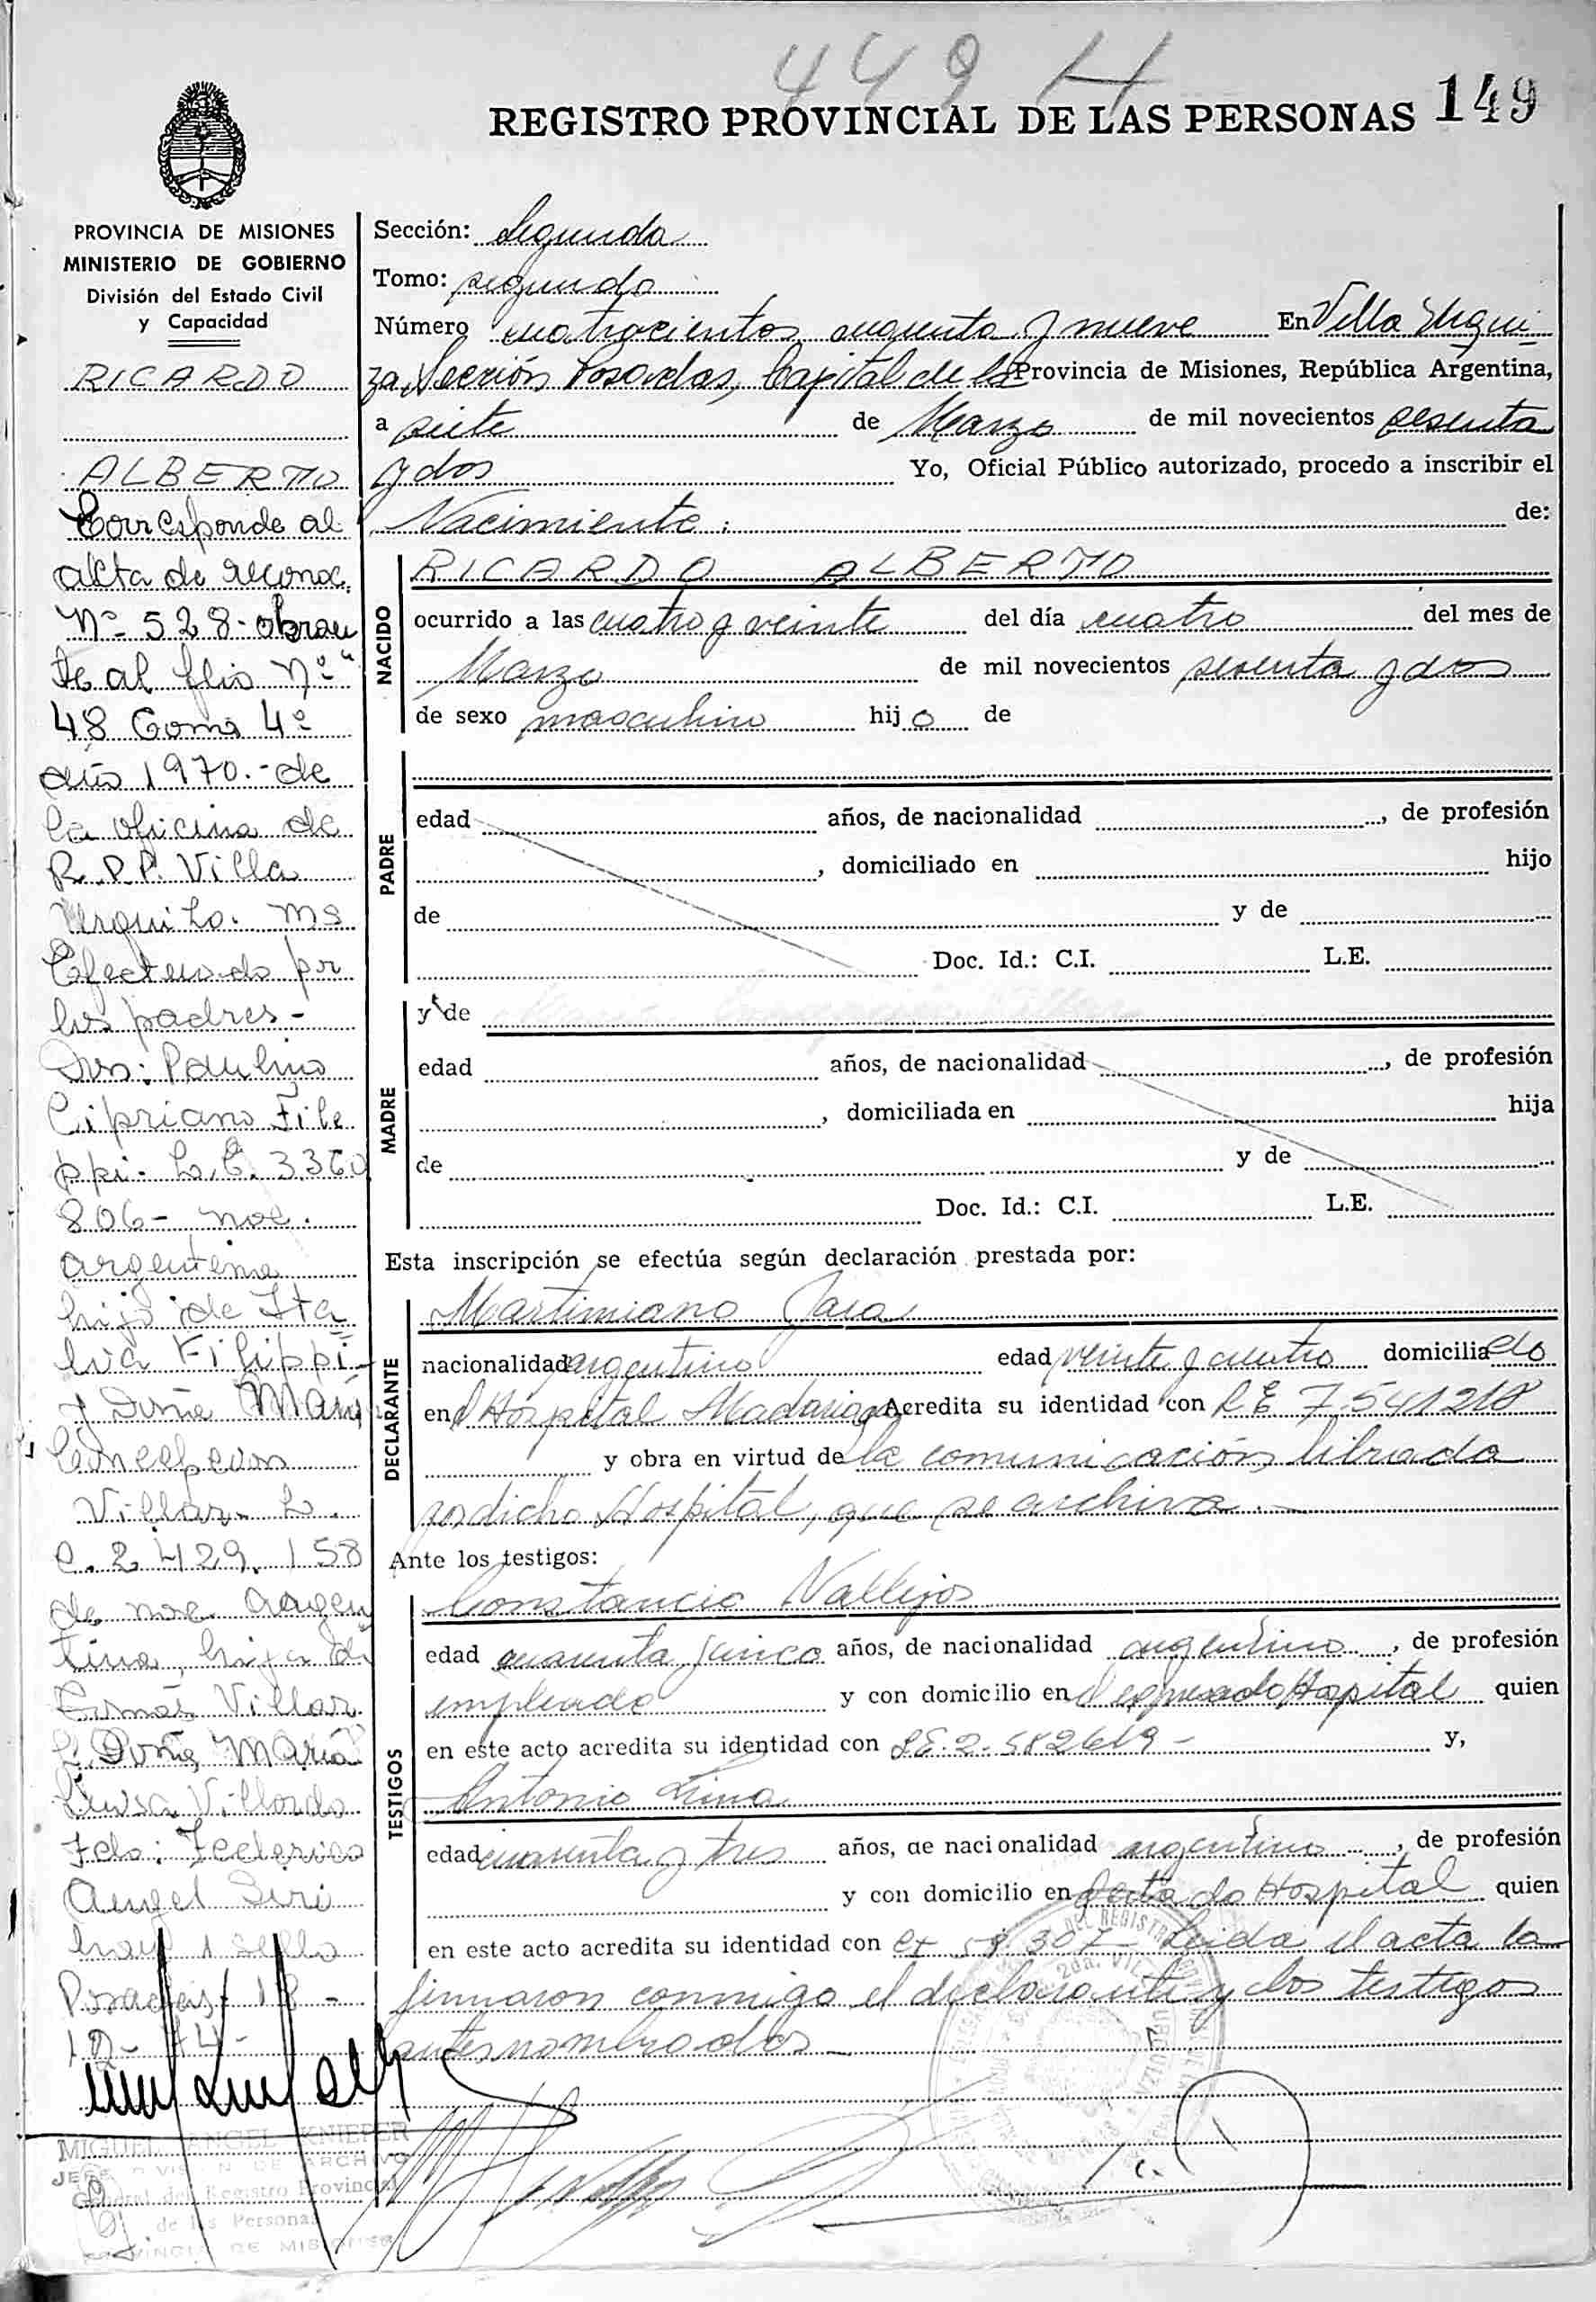 449 H
REGISTRO PROVINCIAL DE LAS PERSONAS 149
PROVINCIA DE MISIONES
MINISTERIO DE GOBIERNO
División del Estado Civil
y Capacidad
RICARDO
ALBERTO
Corresponde al
acta de reconoc.
Nº 528 - obran
te al flio Nº
48 Tomo 4º
año 1970.- de
la oficina de
R.P.P. Villa
Urquiza. Ms
Efectuado por
los padres -
Dn: Paulino
Cipriano File
ppi - L.E. 3.360
806 - nac.
argentina
hijo de Ita
lia Filippi
y Doña María
Concepcion
Villar. L.
C. 2.429.158
de nac. Argen
tina, hija de
Tomás Villar
y Doña María
Luisa Villordo
Fdo: Federico
Angel Siri
hay 1 sello
Posadas, 18 -
12 - 74 -
MIGUEL ANGEL KNIEPER
JEFE DIVISION DE ARCHIVO
General del Registro Provincial
de las Personas
PROVINCIA DE MISIONES
Sección: Segunda
Tomo: segundo
Número cuatrocientos cuarenta y nueve En Villa Urqui
za, Sección Posadas, Capital de la Provincia de Misiones, República Argentina,
a siete de Marzo de mil novecientos sesenta
y dos Yo, Oficial Público autorizado, procedo a inscribir el
Nacimiento: de:
NACIDO
RICARDO ALBERTO
ocurrido a las cuatro y veinte del día cuatro del mes de
Marzo de mil novecientos sesenta y dos
de sexo masculino hijo de
PADRE
edad años, de nacionalidad , de profesión
, domiciliado en hijo
de y de
Doc. Id.: C.I. L.E.
MADRE
y de
edad años, de nacionalidad , de profesión
, domiciliada en hija
de y de
Doc. Id.: C.I. L.E.
Esta inscripción se efectúa según declaración prestada por:
DECLARANTE
Martimiano Jara
nacionalidad argentino edad veinte y cuatro domiciliado
en el Hospital Madariaga Acredita su identidad con L E 7.541218
y obra en virtud de la comunicación librada
por dicho Hospital, que se archiva.
Ante los testigos:
TESTIGOS
Constancio Vallejos
edad cuarenta y cinco años, de nacionalidad argentino , de profesión
empleado y con domicilio en el expresado Hospital quien
en este acto acredita su identidad con L E. 2.582619 - y,
Antonio Lima
edad cuarenta y tres años, de nacionalidad argentino , de profesión
y con domicilio en citado Hospital quien
en este acto acredita su identidad con 58.307 - Leida el acta la
firmaron conmigo el declarante y los testigos
antes nombrados -